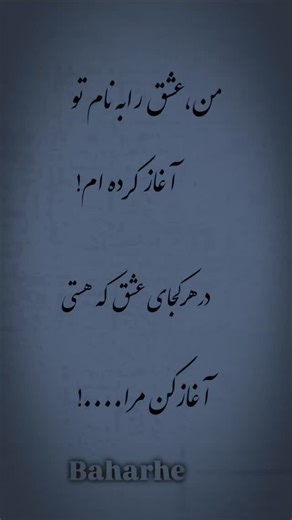 من، عشق را به نام تو
آغاز کرده ام!
در هر کجای عشق که هستی
آغاز کن مرا....!
Baharhe